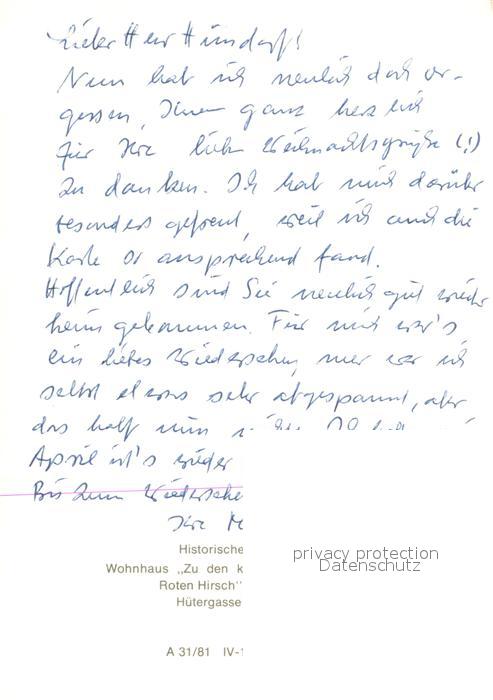 Lieber Herr Hunsdorf!
Nun hab ich neulich doch ver-
gessen, Ihnen ganz herzlich
für Ihre lieben Weihnachtsgrüße (!)
zu danken. Ich hab mich darüber
besonders gefreut, weil ich auch die
Karte so ansprechend fand.
Hoffentlich sind Sie neulich gut wieder
heim gekommen. Für mich war's
ein liebes Wiedersehen, nur war ich
selbst etwas sehr abgespannt, aber
das half nun
April ist's wieder
Bis zum Wiedersehe
Ihre M
Historische
Wohnhaus „Zu den k
Roten Hirsch"
Hütergasse
privacy protection
Datenschutz
A 31/81 IV-1